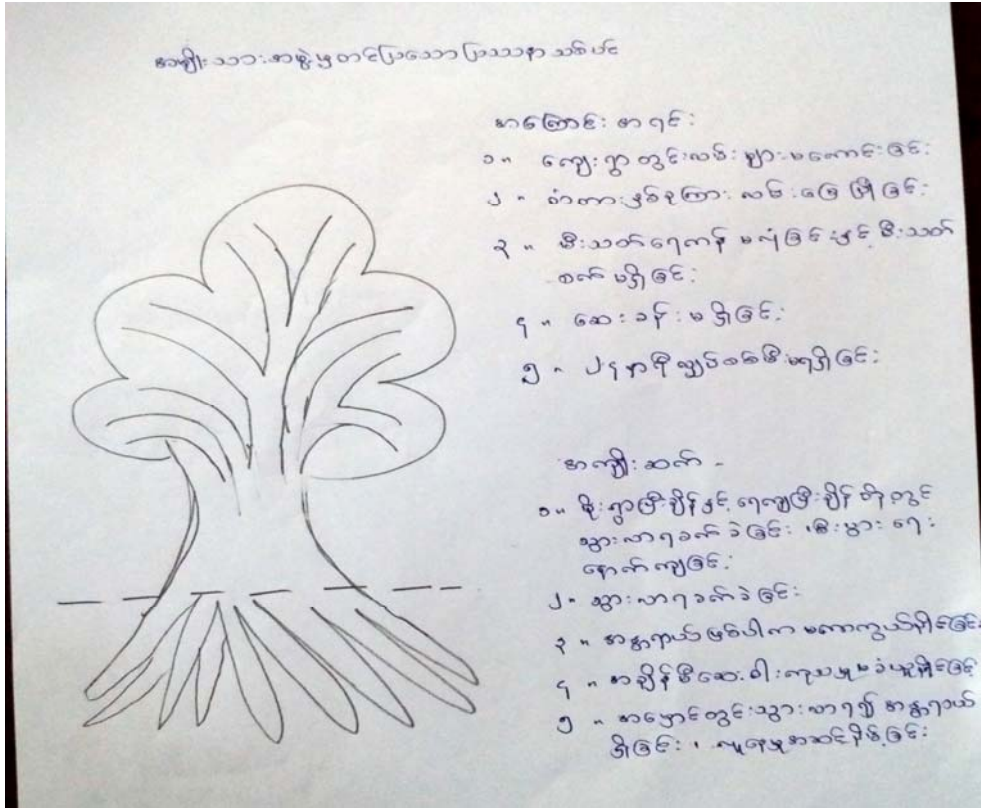 အမျိုးသားအဖွဲ့မှတင်ပြသော ပြဿနာသစ်ပင်
အကြောင်းအရင်း
၁။ ကျေးရွာတွင်းလမ်းများမကောင်းခြင်း
၂။ တံတားနှစ်ခုကြား လမ်းမြေပြိုခြင်း
၃။ မီးသတ်ရေကန် မလုံခြင်းနှင့် မီးသတ်
စက် မရှိခြင်း
၄။ ဆေးခန်း မရှိခြင်း
၅။ ၂၄ နာရီ လျှပ်စစ်မီးမရရှိခြင်း
အကျိုးဆက် -
၁။ မိုးရွာပြီးချိန်နှင့် ရေကျပြီးချိန် တို့တွင်
သွားလာရခက်ခဲခြင်း၊ စီးပွားရေး
နောက်ကျခြင်း
၂။ သွားလာရခက်ခဲခြင်း
၃။ အန္တရာယ်ဖြစ်ပါက မကာကွယ်နိုင်ခြင်း
၄။ အချိန်မီဆေးဝါးကုသမှုမခံယူနိုင်ခြင်း
၅။ အမှောင်တွင်းသွားလာရ၍ အန္တရာယ်
ရှိခြင်း ၊ လူနေမှုအဆင့်နိမ့်ခြင်း